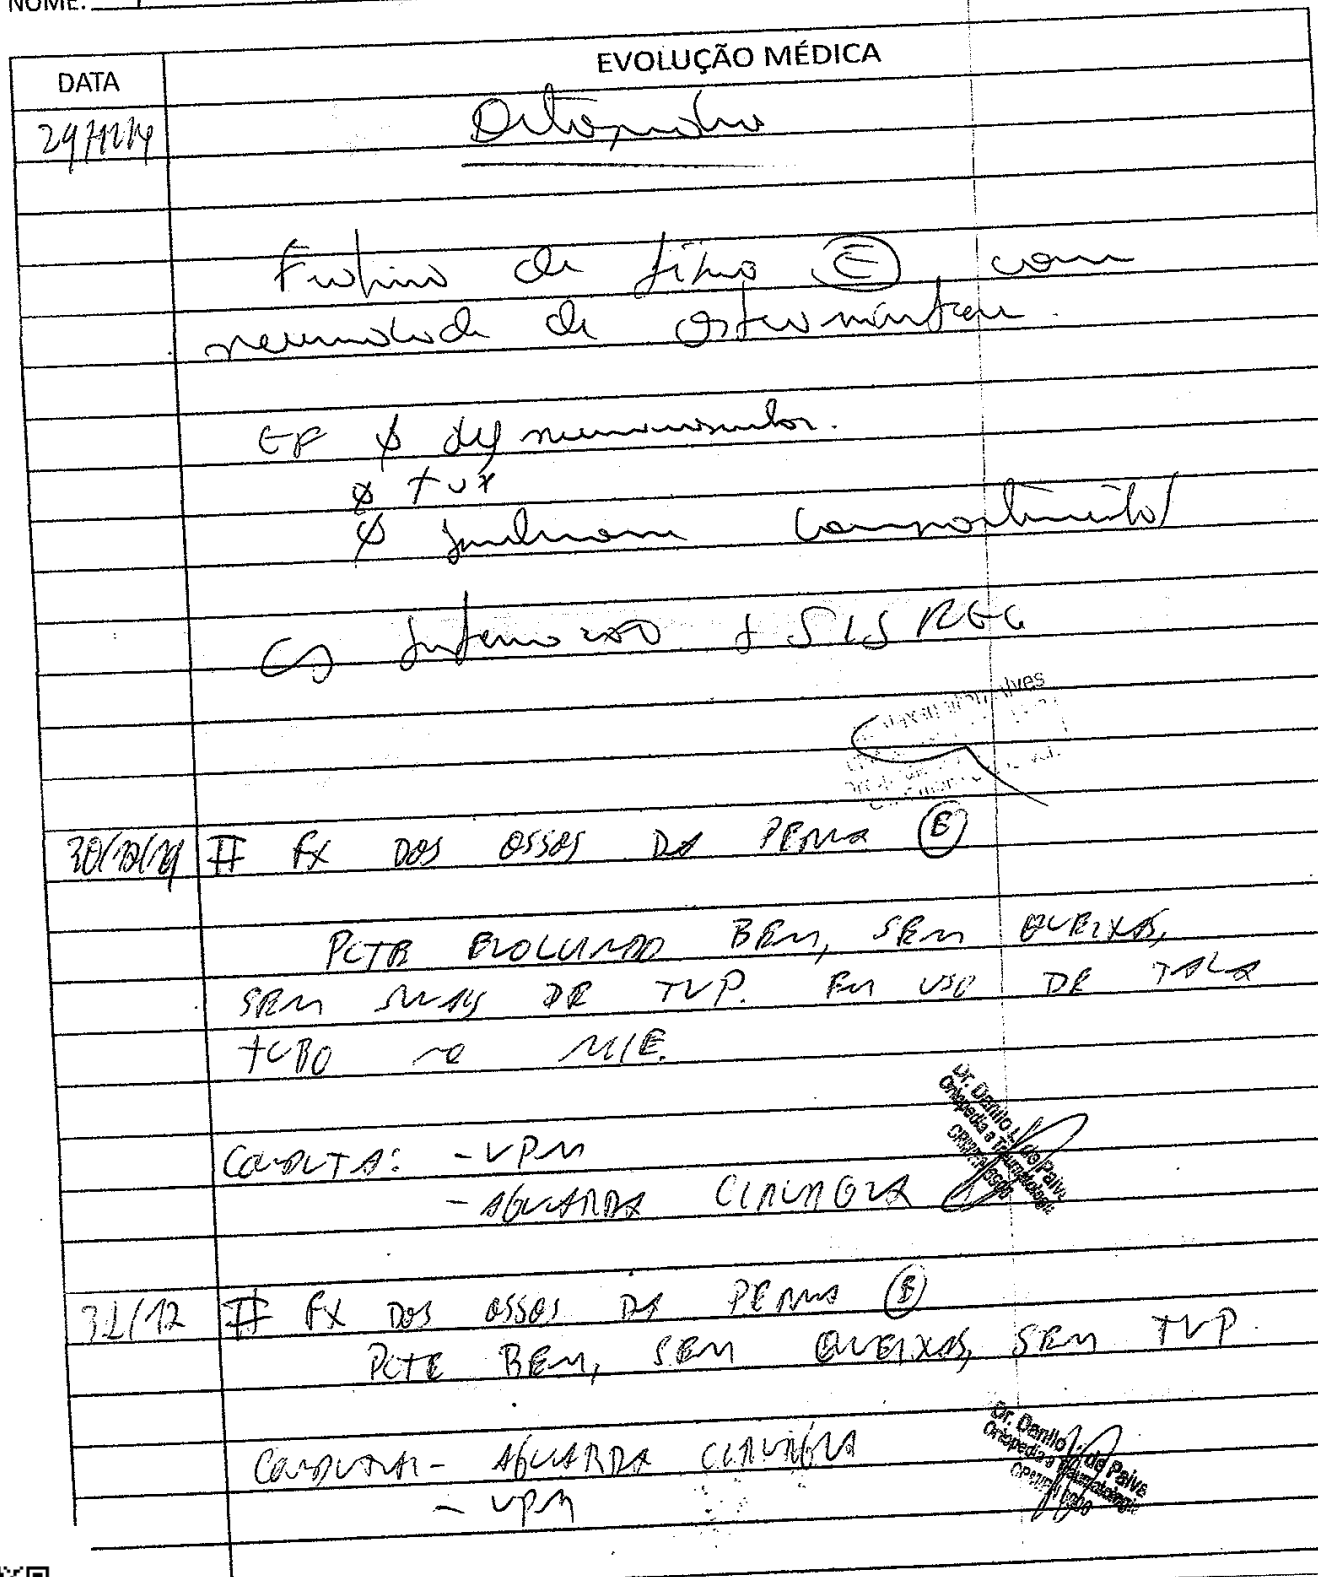 NOME:
DATA EVOLUÇÃO MÉDICA
29/12/19 Ortopedia
Fratura de tíbia (E) com
necessidade de osteossíntese.
EF ∅ def neurovascular.
∅ TVP
∅ síndrome compartimental
CD Internação + SISREG
30/12/19 # FX DOS OSSOS DA PERNA (E)
PCTE EVOLUINDO BEM, SEM QUEIXAS,
SEM SINAIS DE TVP. EM USO DE TALA
TUBO NO MIE.
CONDUTA: - VPM
- AGUARDA CIRURGIA
Dr. Danilo L. de Paiva
Ortopedia e Traumatologia
31/12 # FX DOS OSSOS DA PERNA (E)
PCTE BEM, SEM QUEIXAS, SEM TVP.
CONDUTA: - AGUARDA CIRURGIA
- VPM
Dr. Danilo L. de Paiva
Ortopedia e Traumatologia